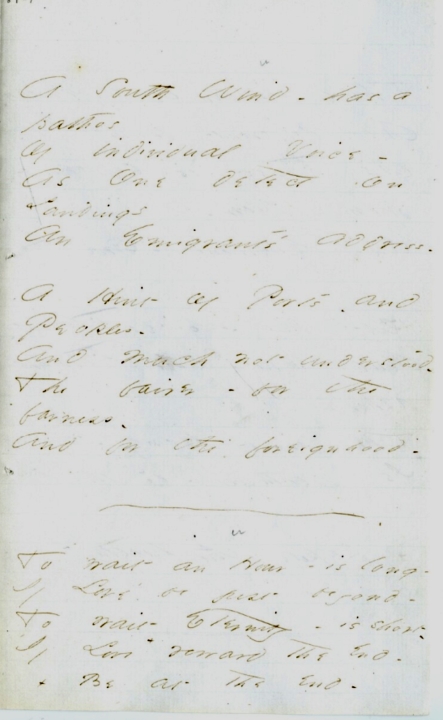 A South Wind - has a
pathos
Of individual Voice -
As One detect on
Landings
An Emigrant's address.
A Hint of Ports - and
Peoples -
And much not understood -
The fairer - for the
farness -
And for the foreignhood -
To wait an Hour - is long -
If Love be just beyond -
To wait Eternity - is short -
If Love reward the end -
+ Be at the End -